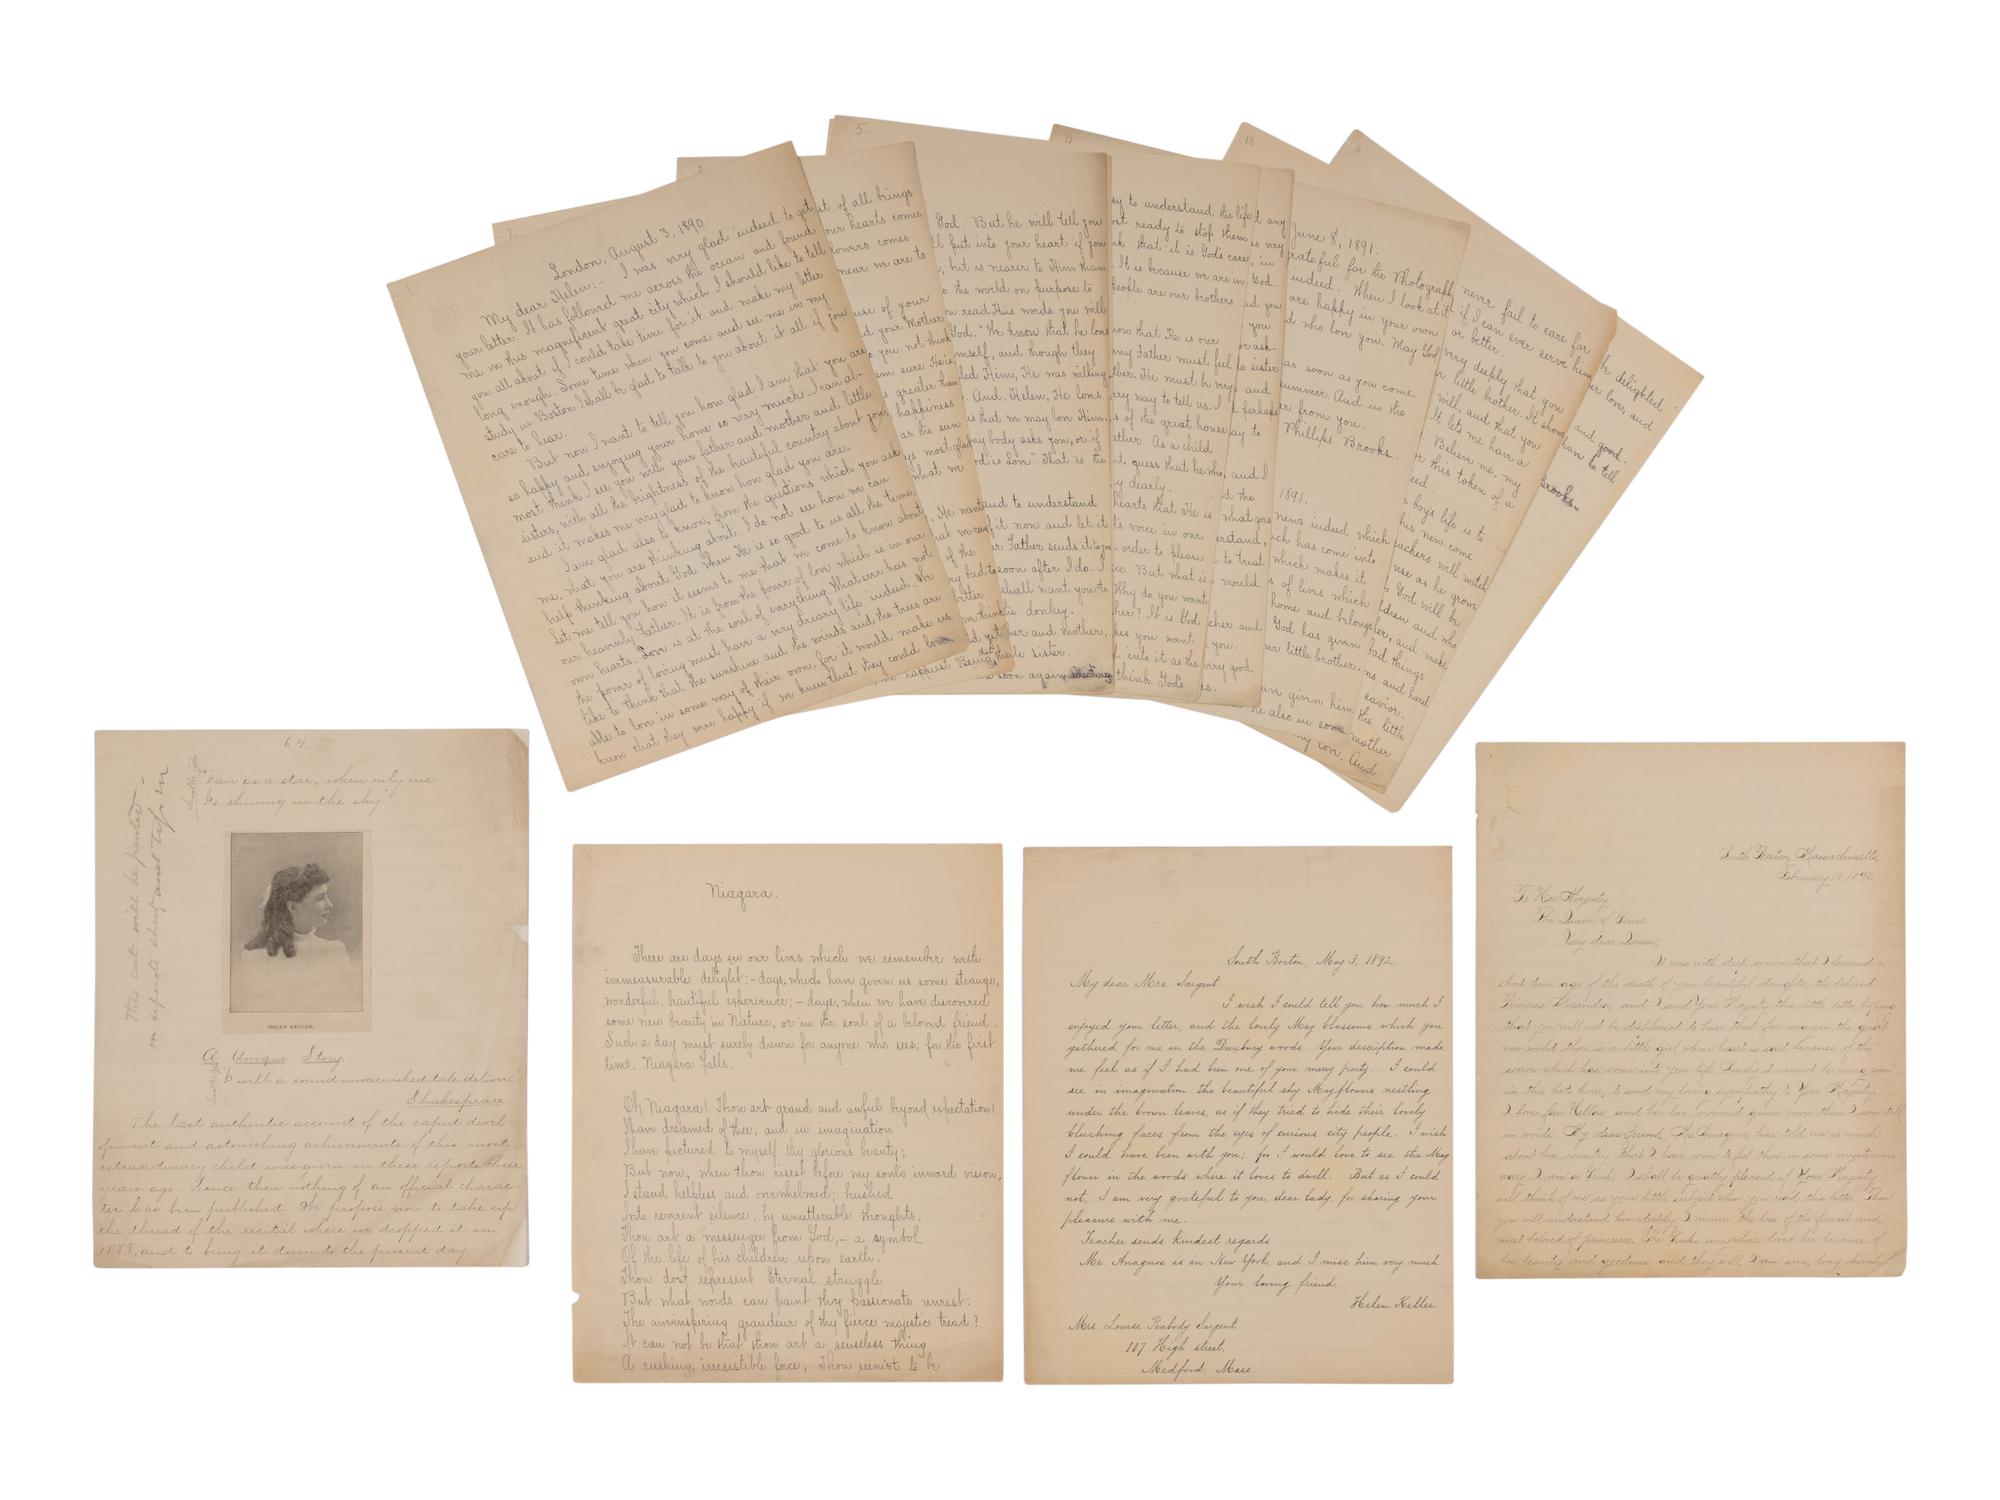 1
London, August 3, 1890.
My dear Helen:- I was very glad indeed to get
your letter. It has followed me across the ocean and found
me in this magnificent great city which I should like to tell
you all about if I could take time for it and make my letter
long enough. Some time when you come and see me in my
study in Boston I shall be glad to talk to you about it all if you
care to hear.
But now I want to tell you how glad I am that you are
so happy and enjoying your home so very much. I can al-
most think I see you with your father and mother and little
sisters, with all the brightness of the beautiful country about you,
and it makes me very glad to know how glad you are.
I am glad also to know, from the questions which you ask
me, what you are thinking about. I do not see how we can
help thinking about God when He is so good to us all the time.
Let me tell you how it seems to me that we come to know about
our heavenly Father. It is from the power of love which is in our
own hearts. Love is at the soul of everything. What ever has not
the power of loving must have a very dreary life indeed. We
like to think that the sunshine and the winds and the trees are
able to love in some way of their own, for it would make us
know that they were happy if we knew that they could love
2
st of all beings
our hearts comes
flowers comes
near we are to
use of your
d your Mother
o you not think
am sure He is
is greater than
happiness
as the sun
what we
5.
God. But he will tell you
ll put into your heart if you
, but is nearer to Him than
o the world on purpose to
u read His words you will
God. "We know that he loves
mself, and though they
led Him, He was willing
. And, Helen, He loves
s that we may love Him.
ny body asks you, or if
od is Love." That is the
and to understand
f it now and let it
er Father sends it to you
soon after I do. I
shall want you to
tie donkey.
her and mother,
le sister.
e soon again
y to understand the life
st ready to stop them
k that it is God's care
. It is because we are in
people are our brothers
ow that He is our
any Father must feel
ther. He must be very
ry way to tell us. I
s of the great house
ther. As a child
t, guess that he who,
y dearly.
hearts that He is
's voice in our
order to please
ce. But what is
Why do you want
her? It is God
es you want.
d into it as the
think God's
10
June 8, 1891.
rateful for the Photograph
indeed. When I look at it
are happy in your own
d who love you. May God
as soon as you come
summer. And in the
er from you.
Phillips Brooks.
1891.
news indeed which
ich has come into
which makes it
s of lives which
home and belongs
God has given
ur little brother.
ave given him the
he also in some
my love. And
never fail to care for
if I can ever serve him
or better.
very deeply that you
r little brother. It shows
will, and that you
It lets me have a
. Believe me, my
r this token of a
boy's life is to
his new come
eachers will watch
use as he grows
God will be
ldren and who
her, and make
bad things
ns and hard
eavior.
little
mother
be delighted
er love, and
and good-
man to tell
Brooks.
64.
"Fair as a star, when only one
Is shining in the sky."
This cut will be printed
on separate sheet and tip in
HELEN KELLER.
A Unique Story.
"I will a round unvarnished tale deliver."
Shakespeare
The last authentic account of the rapid devel-
opment and astonishing achievements of this most
extraordinary child was given in these reports three
years ago. Since then nothing of an official charac-
ter has been published. We propose now to take up
the thread of the recital where we dropped it in
1888, and to bring it down to the present day.
Niagara.
There are days in our lives which we remember with
immeasurable delight:- days, which have given us some strange,
wonderful, beautiful experience; - days, when we have discovered
some new beauty in Nature, or in the soul of a beloved friend.
Such a day must surely dawn for anyone who sees, for the first
time, Niagara Falls.
Oh Niagara! Thou art grand and awful beyond expectation!
I have dreamed of thee, and in imagination
I have pictured to myself thy glorious beauty;
But now, when thou risest before my soul's inward vision,
I stand helpless and overwhelmed; hushed
Into reverent silence, by unutterable thoughts.
Thou art a messenger from God, - a symbol
Of the life of his children upon earth.
Thou dost represent Eternal struggle
But what words can paint thy passionate unrest:
The aweinspiring grandeur of thy fierce majestic tread?
It can not be that thou art a senseless thing
A rushing, irresistible force; Thou seemest to be
South Boston, May 3, 1892.
My dear Mrs. Sargent,
I wish I could tell you how much I
enjoyed your letter, and the lovely May blossoms which you
gathered for me in the Duxbury woods. Your description made
me feel as if I had been one of your merry party. I could
see in imagination the beautiful shy Mayflowers nestling
under the brown leaves, as if they tried to hide their lovely
blushing faces from the eyes of curious city people. I wish
I could have been with you; for I would love to see the May
flower in the woods where it loves to dwell. But as I could
not, I am very grateful to you, dear lady, for sharing your
pleasure with me.
Teacher sends kindest regards
Mr. Anagnos is in New York, and I miss him very much.
Your loving friend,
Helen Keller
Mrs. Louise Peabody Sargent
107 High street,
Medford, Mass.
South Boston, Massachusetts,
February 1892
To Her Majesty,
The Queen of Greece.
Very dear Queen;
It was with deep sorrow that I learned a
short time ago of the death of your beautiful daughter, the beloved
Princess Alexandra; and I send Your Majesty this little letter, hoping
that you will not be displeased to hear that far away in the great
new world there is a little girl whose heart is sad because of the
sorrow which has come into your life. Surely it cannot be wrong, even
in this late hour, to send my loving sympathy to Your Majesty.
I love fair Hellas and her love-crowned queen more than I can tell
in words. My dear friend, Mr. Anagnos, has told me so much
about his country, that I have come to feel that in some mysterious
way I am a Greek. I shall be greatly pleased if Your Majesty
will think of me as your little subject when you read this letter. Then
you will understand how deeply I mourn the loss of the fairest and
most beloved of princesses. The Greeks everywhere loved her because of
her beauty and goodness, and they will, I am sure, long cherish